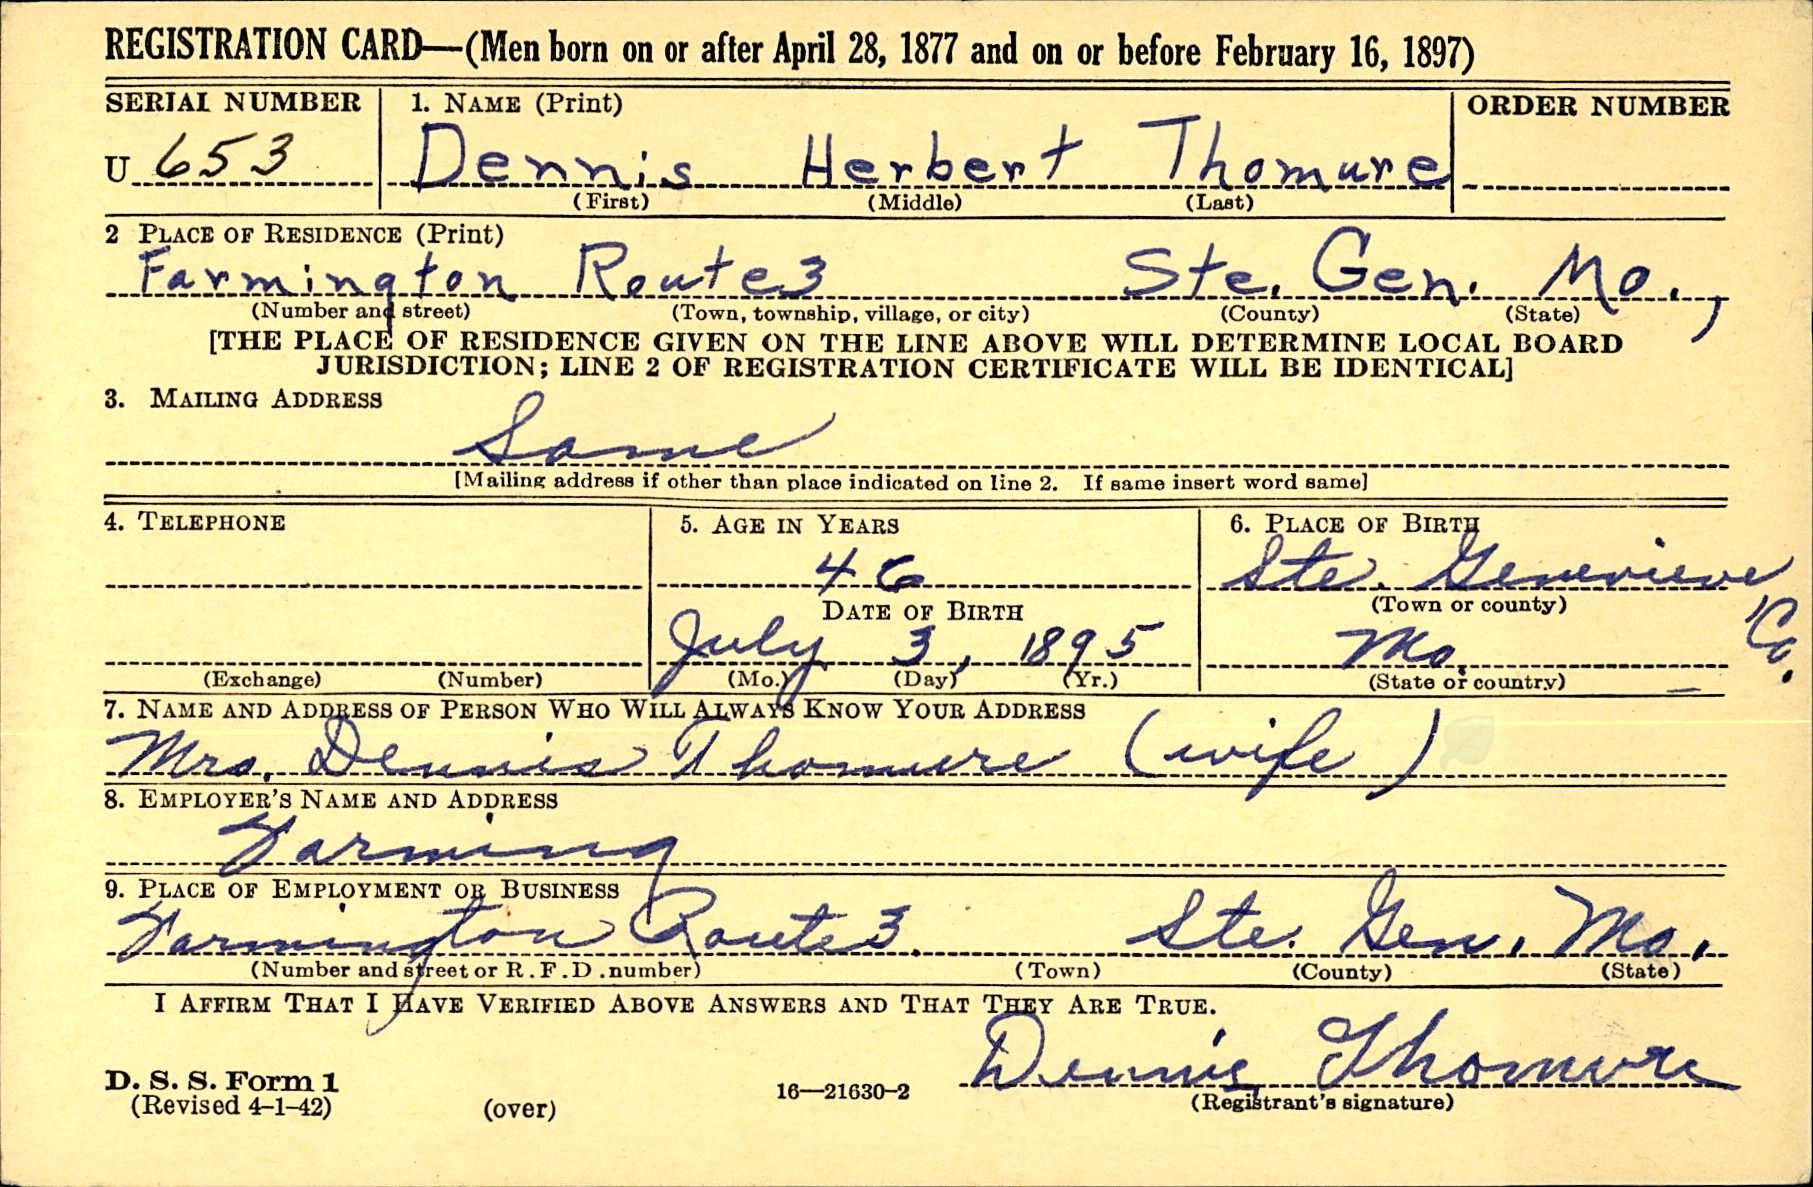 REGISTRATION CARD—(Men born on or after April 28, 1877 and on or before February 16, 1897)
SERIAL NUMBER 1. NAME (Print) ORDER NUMBER
U 653 Dennis Herbert Thomure
(First) (Middle) (Last)
2 PLACE OF RESIDENCE (Print)
Farmington Route 3 Ste. Gen. Mo.,
(Number and street) (Town, township, village, or city) (County) (State)
[THE PLACE OF RESIDENCE GIVEN ON THE LINE ABOVE WILL DETERMINE LOCAL BOARD
JURISDICTION; LINE 2 OF REGISTRATION CERTIFICATE WILL BE IDENTICAL]
3. MAILING ADDRESS
Same
[Mailing address if other than place indicated on line 2. If same insert word same]
4. TELEPHONE 5. AGE IN YEARS 6. PLACE OF BIRTH
46 Ste. Genevieve Co.
DATE OF BIRTH (Town or county)
July 3, 1895 Mo.
(Exchange) (Number) (Mo.) (Day) (Yr.) (State or country)
7. NAME AND ADDRESS OF PERSON WHO WILL ALWAYS KNOW YOUR ADDRESS
Mrs. Dennis Thomure (wife)
8. EMPLOYER'S NAME AND ADDRESS
Farming
9. PLACE OF EMPLOYMENT OR BUSINESS
Farmington Route 3. Ste. Gen. Mo.
(Number and street or R.F.D. number) (Town) (County) (State)
I AFFIRM THAT I HAVE VERIFIED ABOVE ANSWERS AND THAT THEY ARE TRUE.
Dennis Thomure
D. S. S. Form 1
(Revised 4-1-42) (over) 16—21630-2 (Registrant's signature)